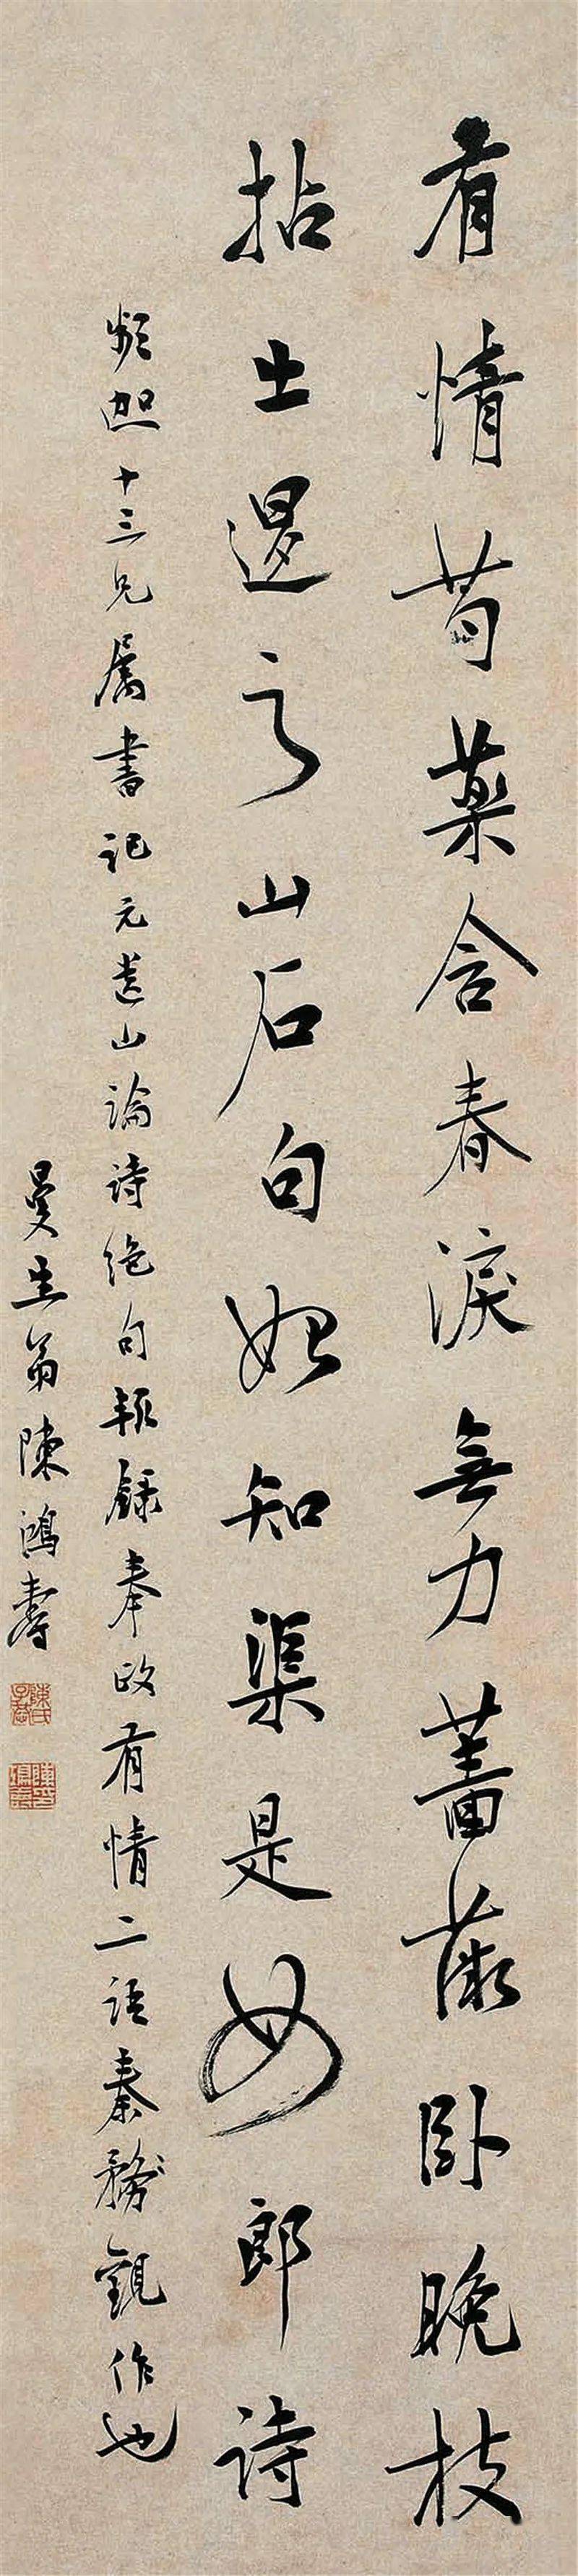 有情芍藥含春淚無力薔薇卧晚枝
拈出退之山石句始知渠是女郎詩
頻迦十三兄屬書記元遺山論詩絶句輒録奉政有情二語秦務觀作也
曼生翁陳鴻壽